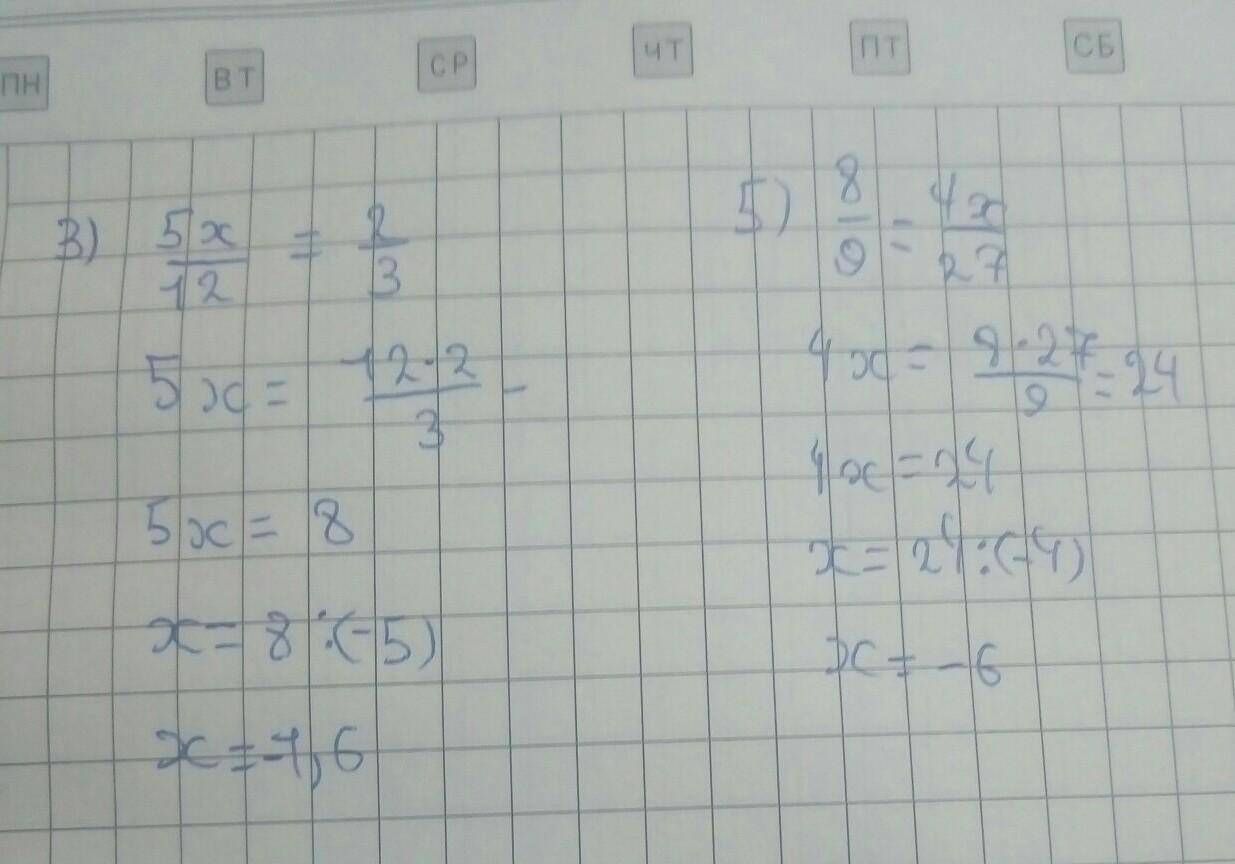 ПН ВТ СР ЧТ ПТ СБ
3) 5x/12 = 2/3
5x = 12·2/3 -
5x = 8
x = 8 :(-5)
x = -1,6
5) 8/9 = 4x/27
4x = 8·27/9 = 24
4x = 24
x = 24:(-4)
x = -6